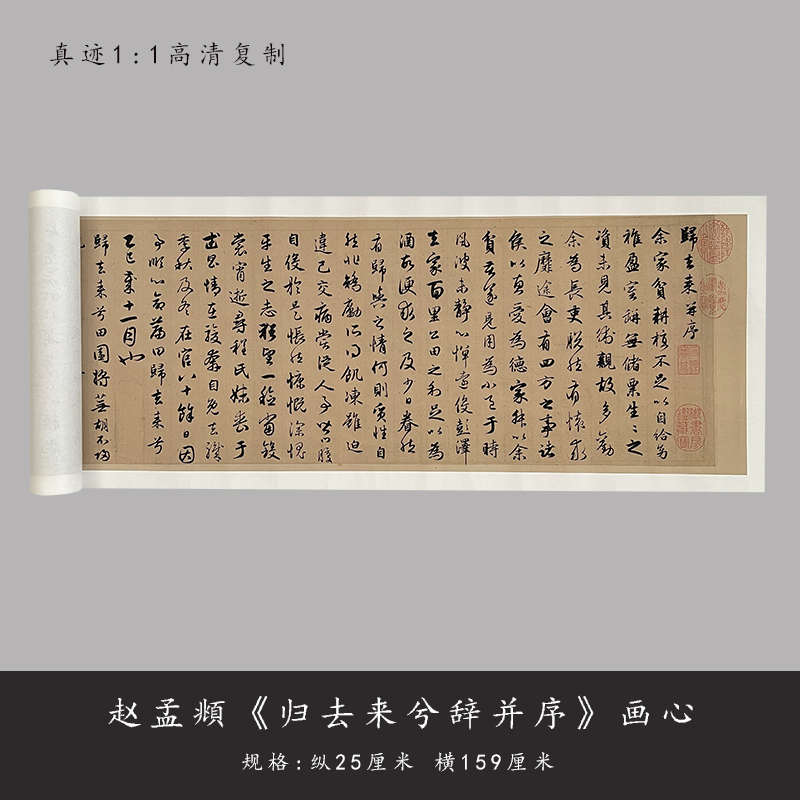 真迹1:1高清复制
歸去来并序
余家貧耕植不足以自給幼
稚盈室缾無儲粟生生之
資未見其術親故多勸
余為長吏脱然有懷求
之靡途會有四方之事諸
侯以惠愛為德家叔以余
貧苦遂見用為小邑于時
風波未静心憚遠役彭澤
去家百里公田之利足以為
酒故便求之及少日眷然
有歸與之情何則質性自
然非矯勵所得飢凍雖迫
違己交病嘗從人事皆口腹
自役於是悵然慷慨深愧
平生之志猶望一稔當斂
裳宵逝尋程氏妹喪于
武昌情在駿奔自免去職
季秋及冬在官八十餘日因
事順心命篇曰歸去来兮
乙巳歲十一月也
歸去来兮田園将蕪胡不歸
赵孟頫《归去来兮辞并序》画心
规格:纵25厘米 横159厘米